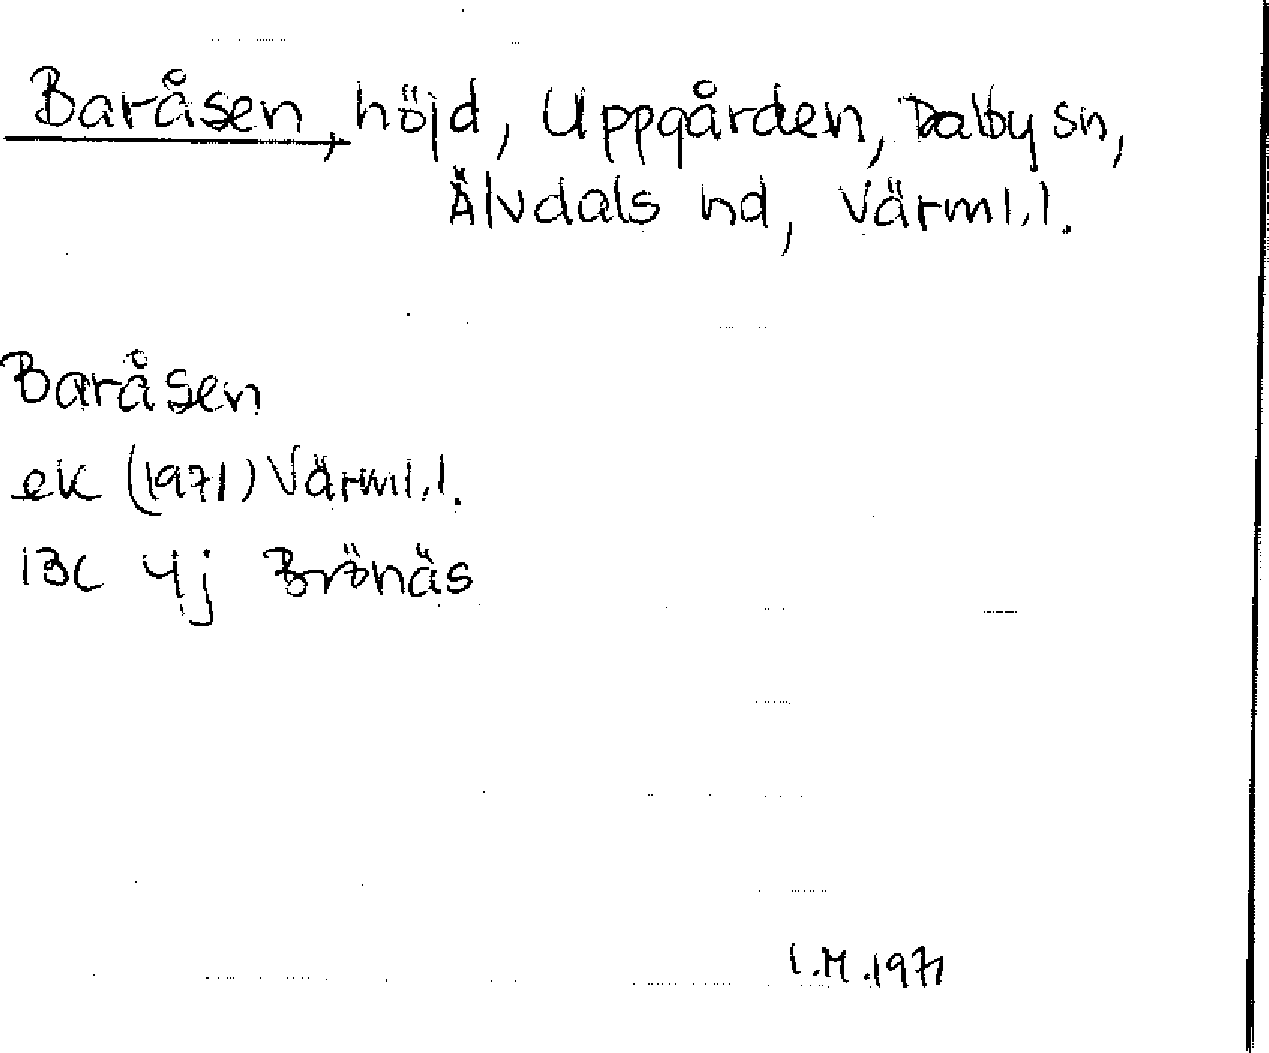 Baråsen, höjd, Uppgården, Dalby sn,
Älvdals hd, Värml.l.
Baråsen
ek (1971) Värml.l.
13C 4j Brönäs
I.M.1971